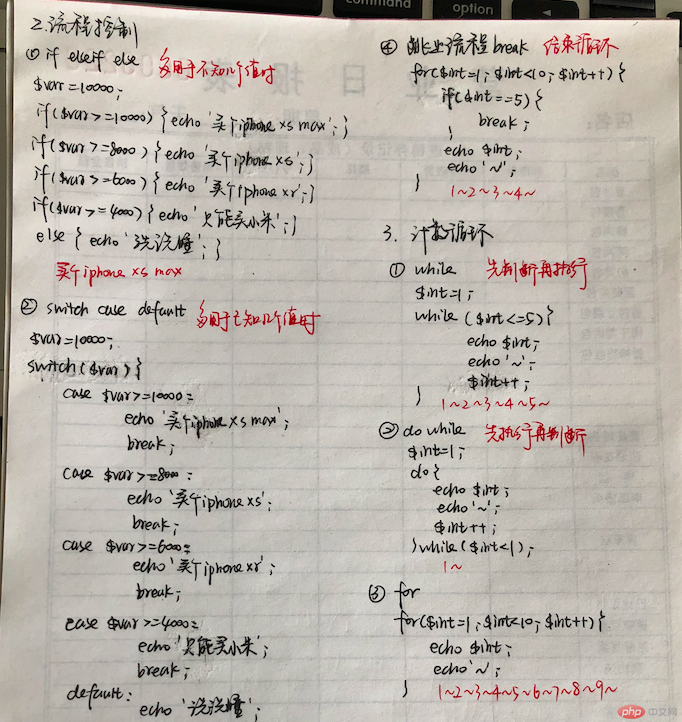 command
option
2.流程控制
① if elseif else 多用于不知几个值时
$var=10000;
if($var>=10000){echo '买个iphone xs max';}
if($var>=8000){echo '买个iphone xs';}
if($var>=6000){echo '买个iphone xr';}
if($var>=4000){echo '只能买小米';}
else { echo '洗洗睡';}
买个iphone xs max
② switch case default 多用于已知几个值时
$var=10000;
switch($var){
case $var>=10000:
echo '买个iphone xs max';
break;
case $var>=8000:
echo '买个iphone xs';
break;
case $var>=6000:
echo '买个iphone xr';
break;
case $var>=4000:
echo '只能买小米';
break;
default:
echo '洗洗睡';
④ 跳出流程 break 结束循环
for($int=1; $int<10; $int++){
if($int==5){
break;
}
echo $int;
echo '~';
}
1~2~3~4~
3. 计数循环
① while 先判断再执行
$int=1;
while ($int<=5){
echo $int;
echo '~';
$int++;
}
1~2~3~4~5~
② do while 先执行再判断
$int=1;
do{
echo $int;
echo '~';
$int++;
}while($int<1);
1~
③ for
for($int=1;$int<10;$int++){
echo $int;
echo '~';
}
1~2~3~4~5~6~7~8~9~
php 中文网